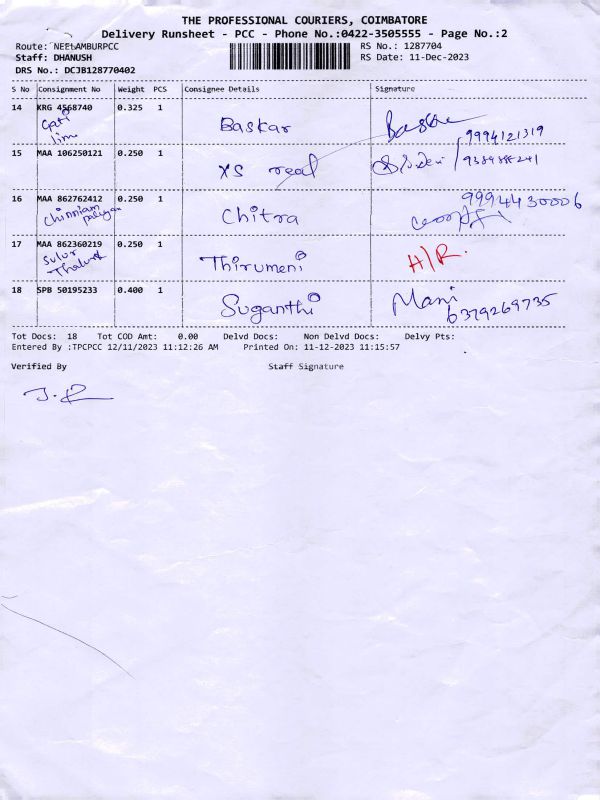 THE PROFESSIONAL COURIERS, COIMBATORE
Delivery Runsheet - PCC - Phone No.:0422-3505555 - Page No.:2
Route: NEELAMBURPCC RS No.: 1287704
Staff: DHANUSH RS Date: 11-Dec-2023
DRS No.: DCJB128770402
S No Consignment No Weight PCS Consignee Details Signature
14 KRG 4568740 0.325 1 Baskar
9994121319
15 MAA 106250121 0.250 1 XS real
16 MAA 862762412 0.250 1 Chitra 9994430006
17 MAA 862360219 0.250 1 Thirumeni H/R.
Sulur
18 SPB 50195233 0.400 1 Suganthi Mani
6379269735
Tot Docs: 18 Tot COD Amt: 0.00 Delvd Docs: Non Delvd Docs: Delvy Pts:
Entered By :TPCPCC 12/11/2023 11:12:26 AM Printed On: 11-12-2023 11:15:57
Verified By Staff Signature